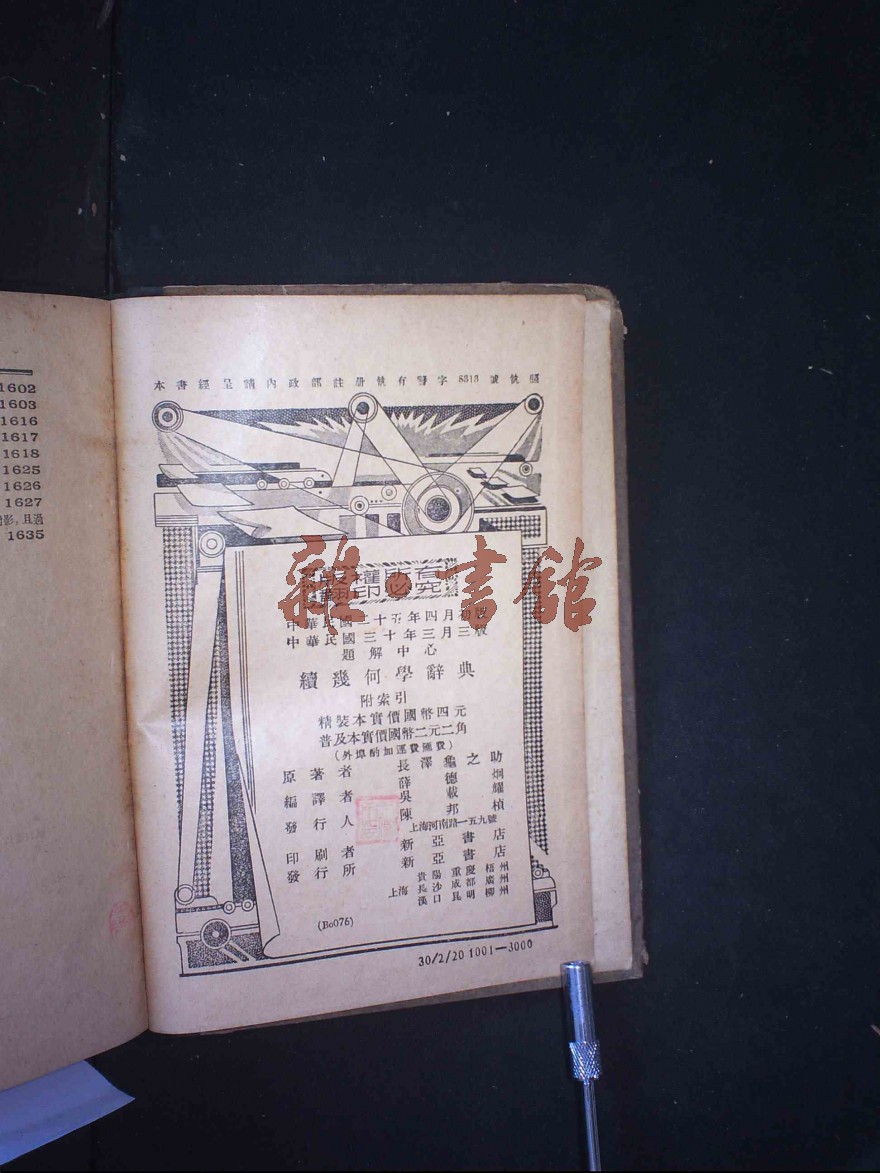 1602
1603
1616
1617
1618
1625
1626
1627
影,且過
1635
本書經呈請內政部註册執有警字8313號執照
版權所有
翻印必究
雜·書館
中華民國二十五年四月初版
中華民國三十年三月三版
題解中心
續幾何學辭典
附索引
精裝本實價國幣四元
普及本實價國幣二元二角
(外埠酌加運費匯費)
原著者 長澤龜之助
編譯者 薛德炯
吳載耀
發行人 陳邦楨
上海河南路一五九號
印刷者 新亞書店
發行所 新亞書店
貴陽重慶梧州
上海長沙成都廣州
漢口昆明柳州
(Bo076)
30/2/20 1001—3000